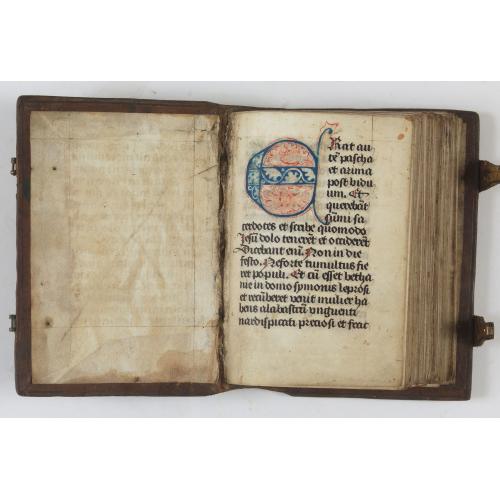 ERat au
tē pascha
et azima
post bidu
um. Et
querebāt
sūmi sa
cerdotes et scribe quomodo
Jesū dolo tenerēt et occiderēt
Dicebant enī Non in die
festo. Neforte tumultus fie
ret populi. Et cū esset betha
nie in domo symonis leprosi
et recūberet venit mulier ha
bens alabastrū vnguenti
nardispicati preciosi et fract